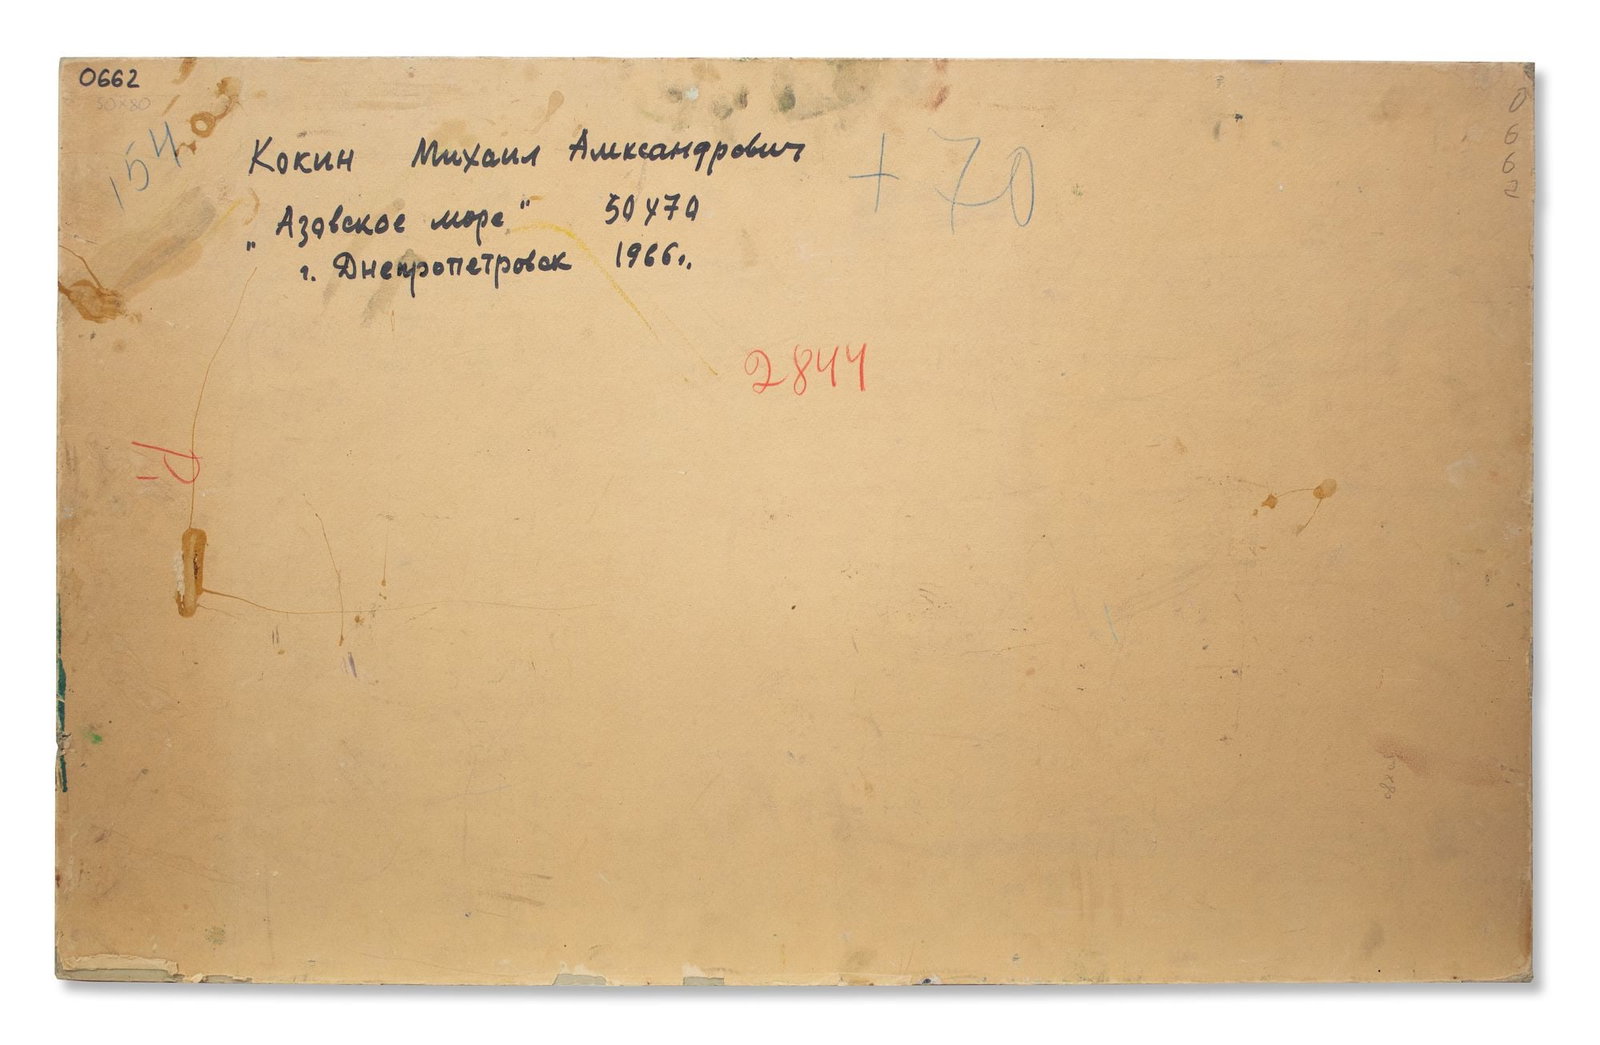 0662
50×80
154
Кокин Михаил Алксандрович
+70
"Азовское море" 50х70
г. Днепропетровск 1966г.
2844
0662